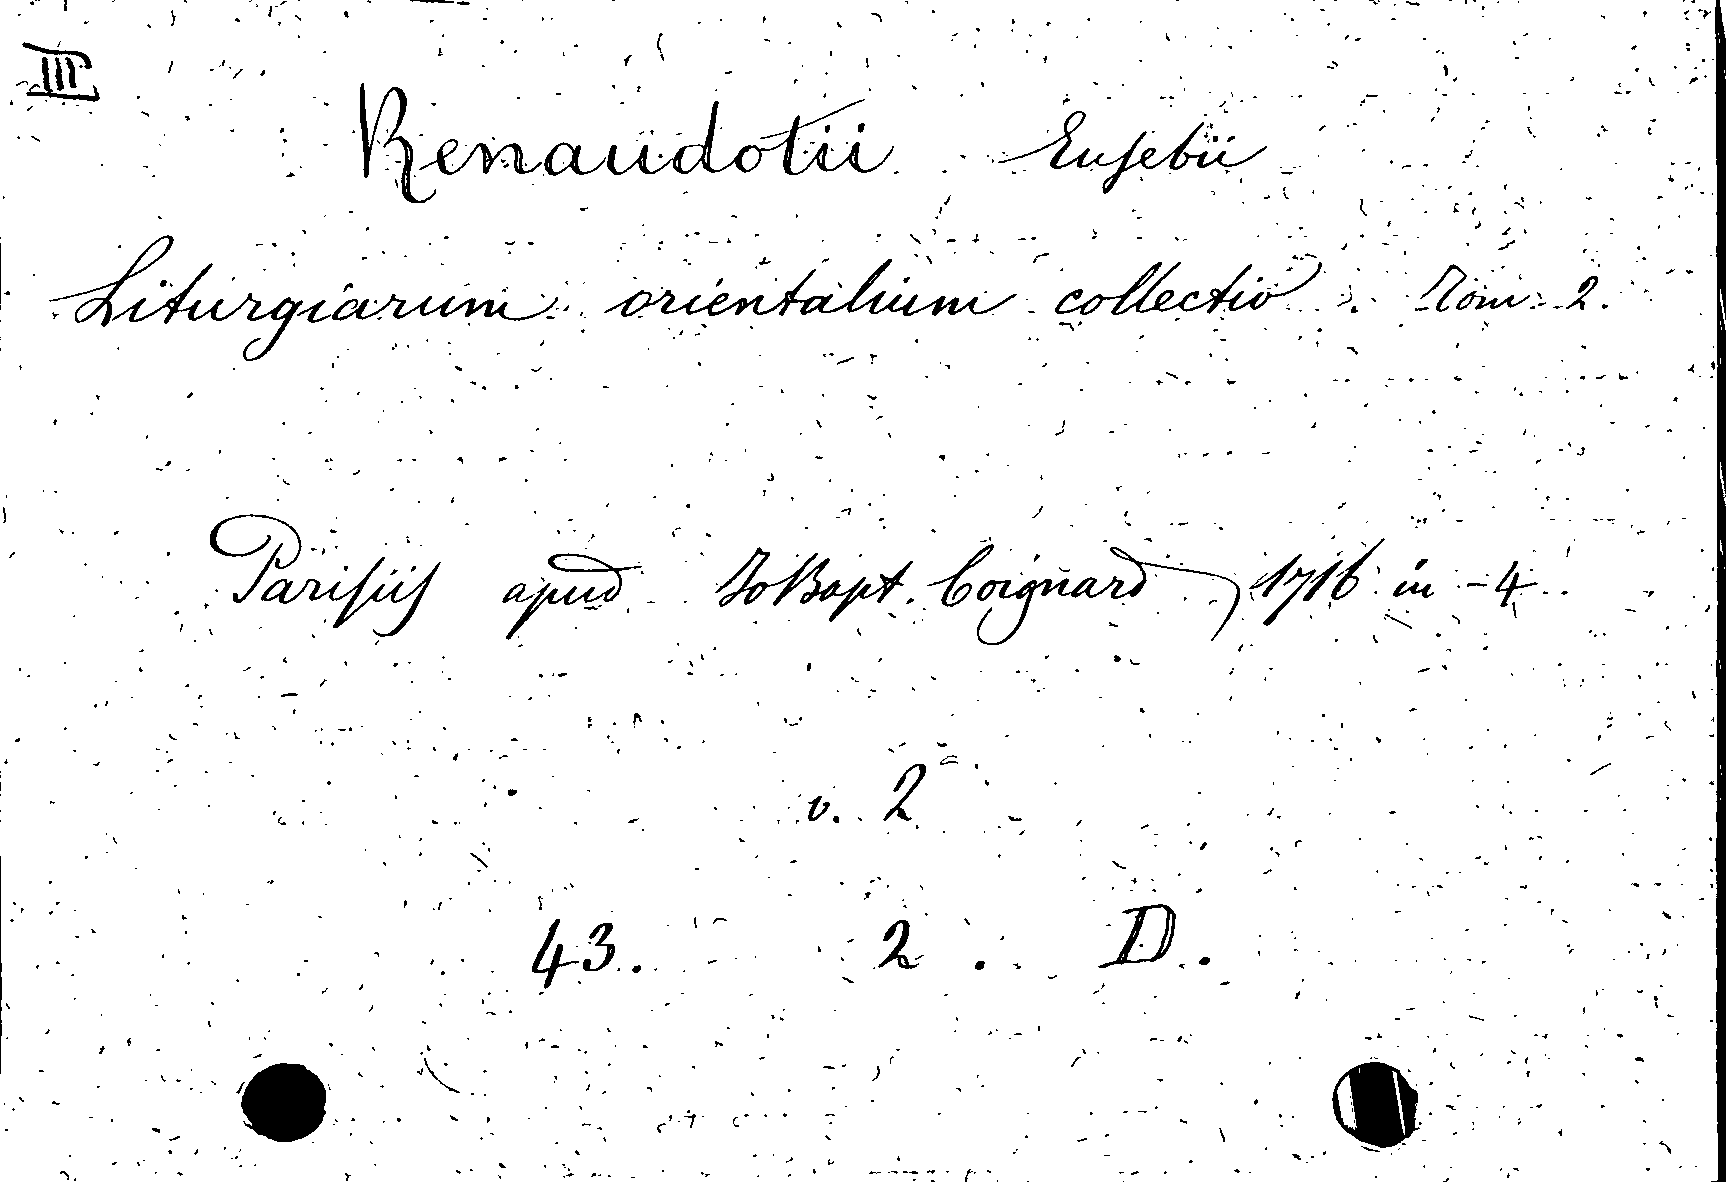 III
Renaudotii Eusebii
Liturgiarum orientalium collectio. Tom 2.
Parisiis apud Jo Bapt. Coignard, 1716 in-4
v. 2
43. 2. D.